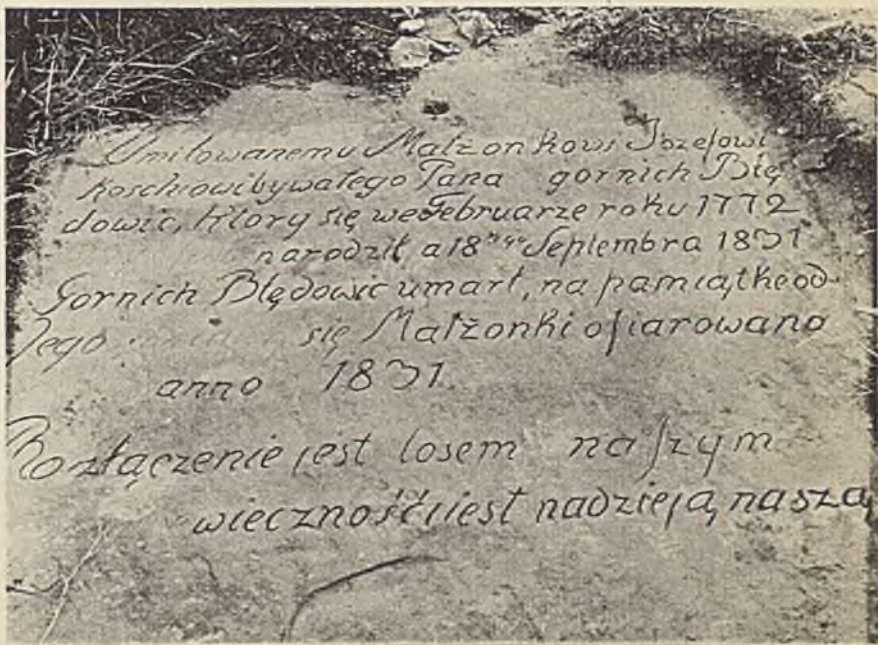 Umiłowanemu Małzonkowi Jozefowi
Koschiowi bywałego Pana gornich Błę
dowic, Ktory się we Februarze roku 1772
narodził, a 18 Septembra 1831
Gornich Błędowic umarł, na pamiątke od
Jego się Małżonki ofiarowano
anno 1831
Rozłączenie jest losem naszym
wieczność jest nadzieją naszą